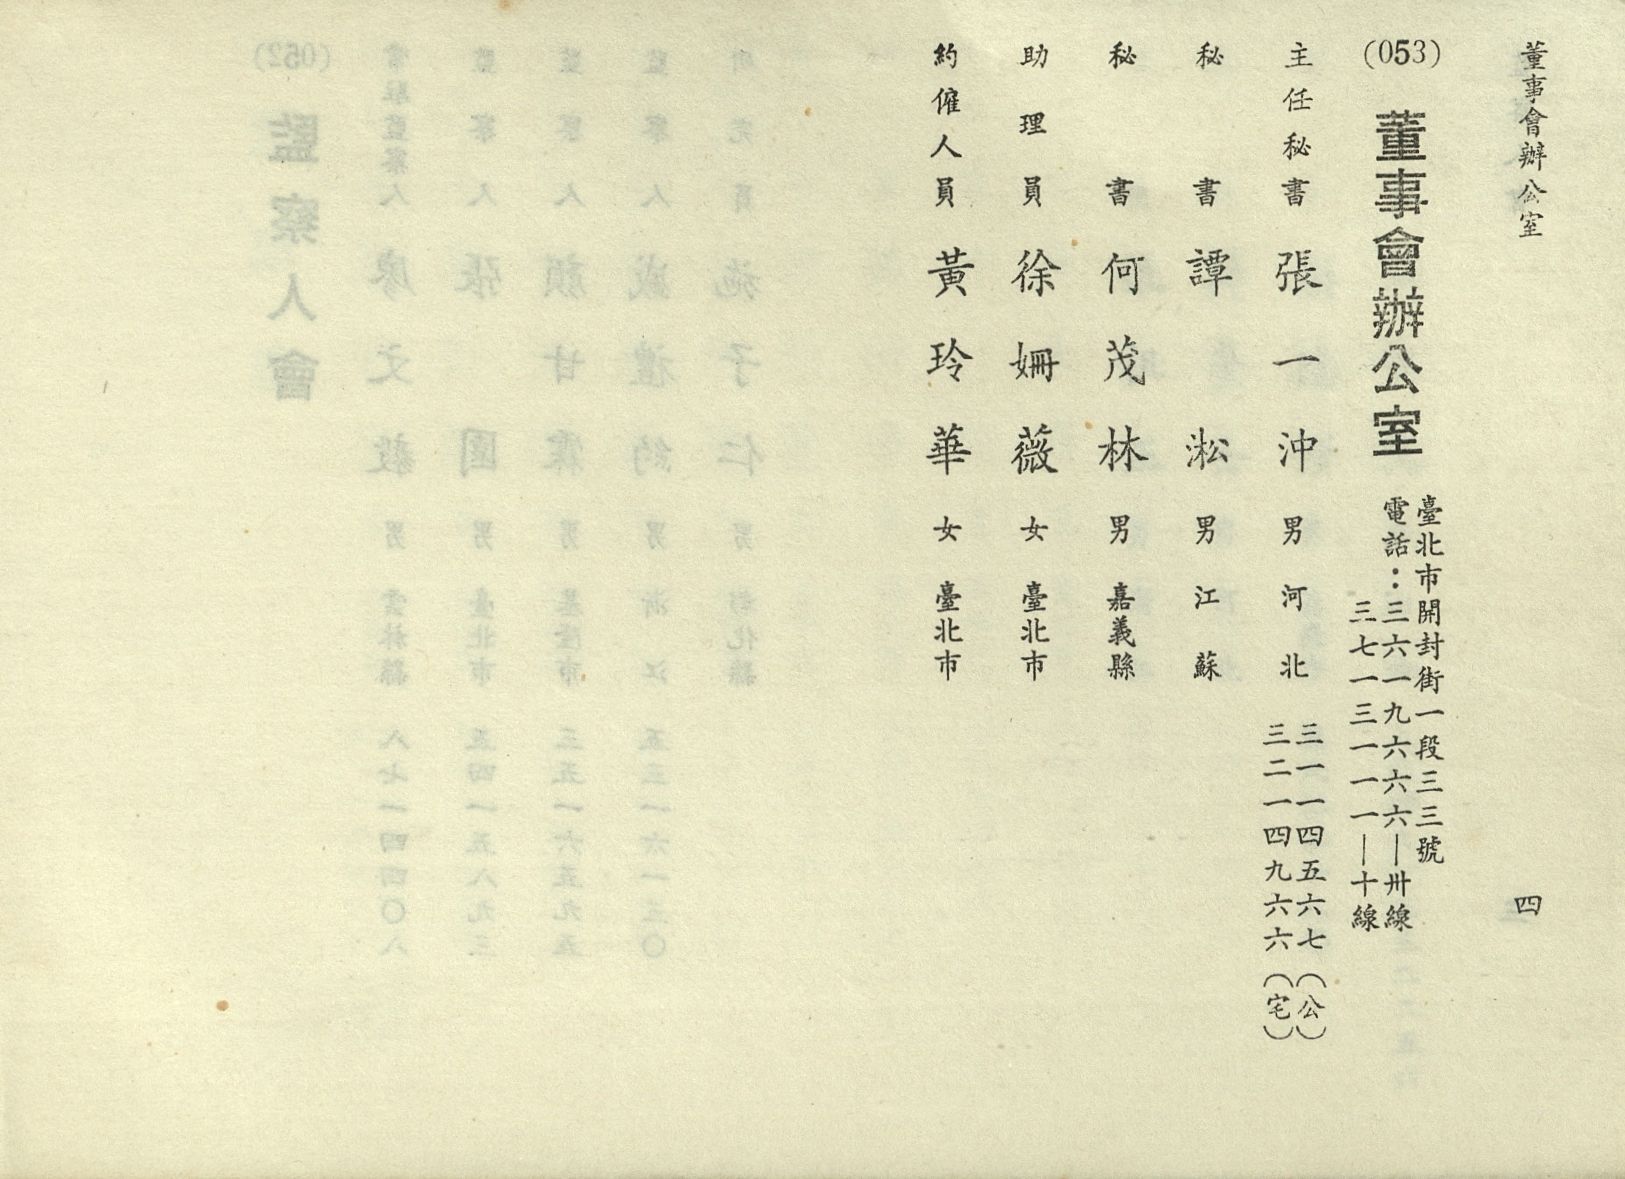 董事會辦公室
四
(053)
董事會辦公室
臺北市開封街一段三三號
電話：三六一九六六六｜卅線
三七一三一一一｜十線
主任秘書 張一沖 男 河北 三一一四五六七（公）
三二一四九六六（宅）
秘書 譚淞 男 江蘇
秘書 何茂林 男 嘉義縣
助理員 徐姍薇 女 臺北市
約僱人員 黃玲華 女 臺北市